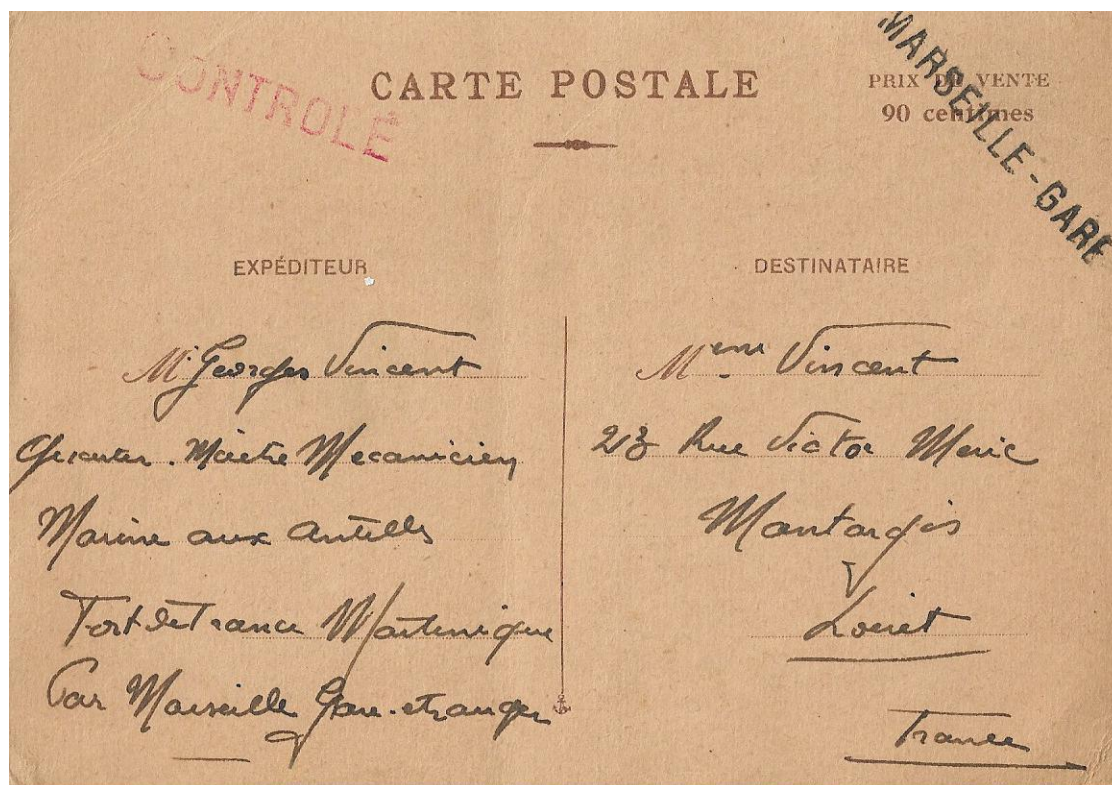 CONTROLÉ
CARTE POSTALE
PRIX DE VENTE
90 centimes
MARSEILLE-GARE
EXPÉDITEUR
M. Georges Vincent
Quartier-Maître Mecanicien
Marine aux Antilles
Fort de France Martinique
Par Marseille Gare-etranger
DESTINATAIRE
Mme Vincent
23 Rue Victor Meric
Montargis
Loiret
France